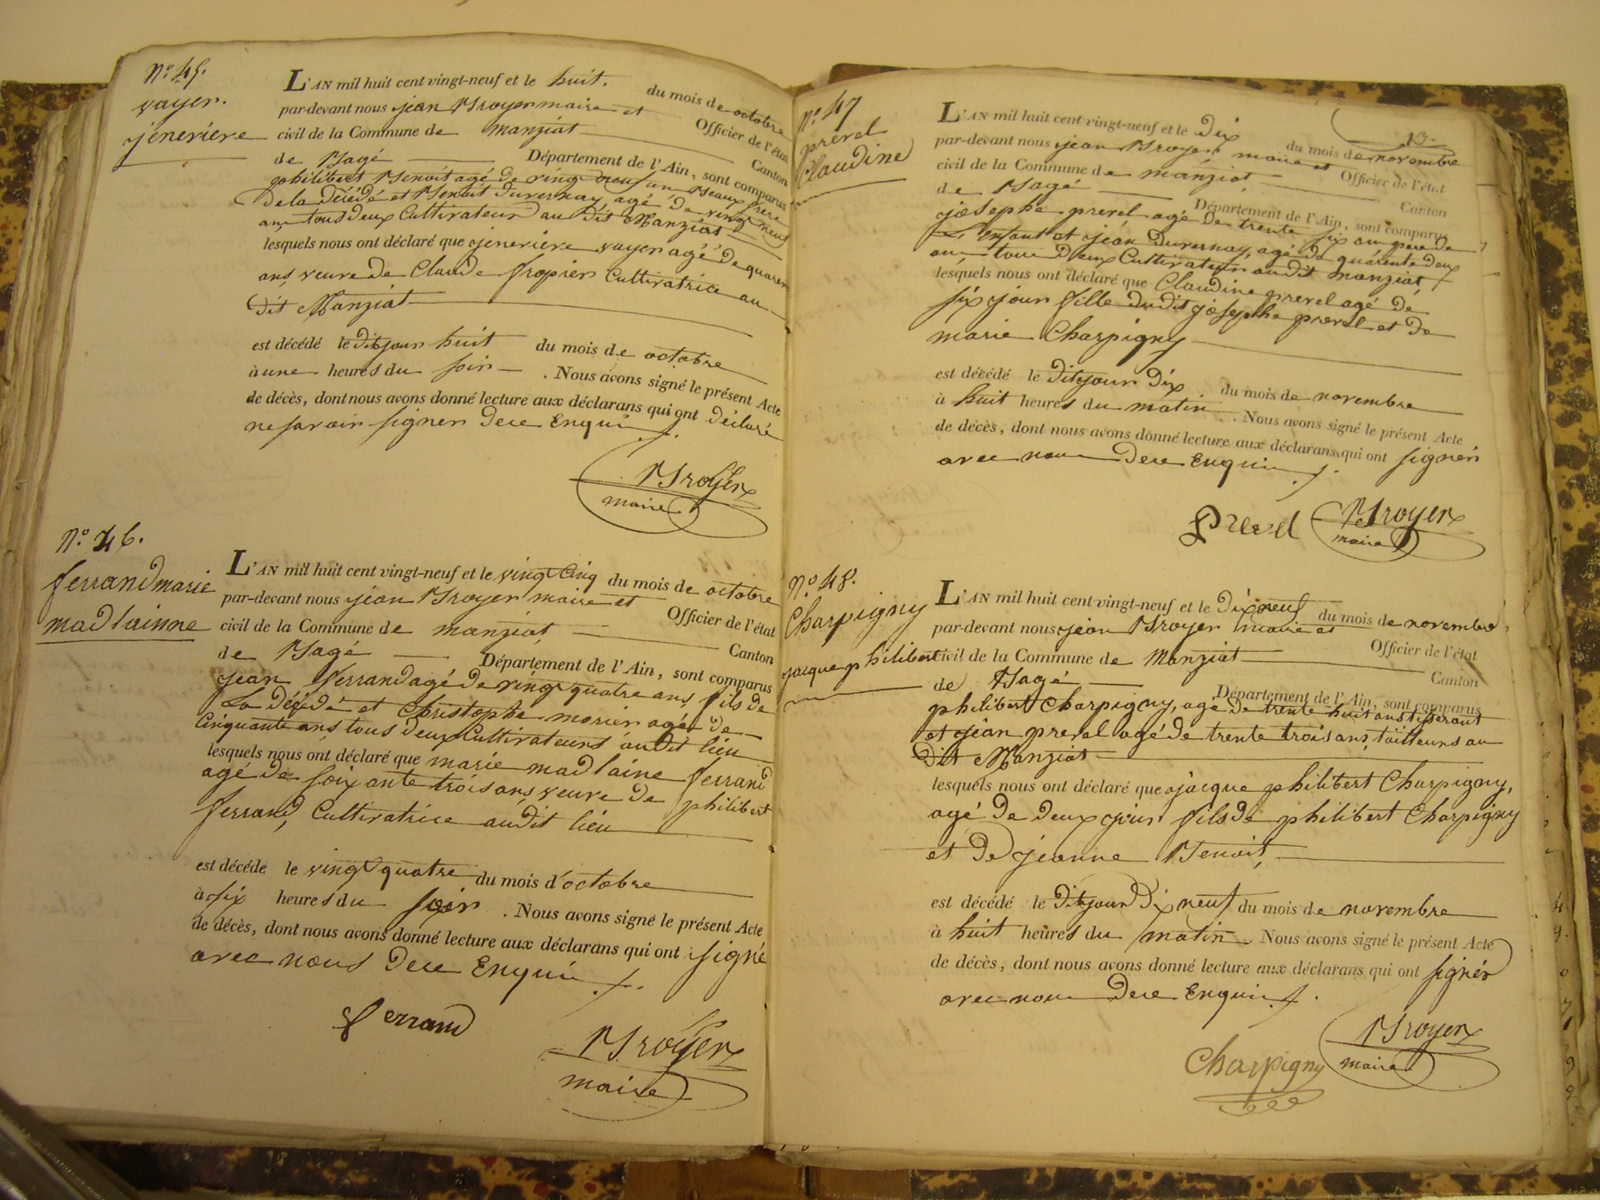 N.º 45.
vayer.
jenevieve
L'AN mil huit cent vingt-neuf et le huit. du mois de octobre
par-devant nous jean Broyer maire et Officier de l'état
civil de la Commune de manziat Canton
de Bagé Département de l'Ain, sont comparus
philibert Benoit agé de vingt neuf un Beaux frere
De la Décédé et Benoit Duvernay, agé De vingt neuf
ans tous deux Cultivateur au Dit Manziat
lesquels nous ont déclaré que jenevieve vayer agé De quaren
ans, veuve De Claude Cultivatrice au
Dit Manziat
est décédé le Dit jour huit du mois de octobre
à une heures du soir . Nous avons signé le présent Acte
de décès, dont nous avons donné lecture aux déclarans qui ont déclaré
ne savoir signer De ce Enqui
Broyer
maire
N.º 46.
ferrand marie
madlainne
L'AN mil huit cent vingt-neuf et le vingt Cinq du mois de octobre
par-devant nous jean Broyer maire et Officier de l'état
civil de la Commune de manziat Canton
de Bagé Département de l'Ain, sont comparus
jean ferrand agé De vingt quatre ans fils de
La Décédé et Christophe morier agé De
Cinquante ans tous Deux Cultivateurs au Dit lieu
lesquels nous ont déclaré que marie madlaine ferrand
agé De soixante trois ans veuve De philibert
ferrand, Cultivatrice au Dit lieu
est décéde le vingt quatre du mois d'octobre
à six heures du soir . Nous avons signé le présent Acte
de décès, dont nous avons donné lecture aux déclarans qui ont signé
avec nous De ce Enqui
ferrand
Broyer
maire
N.º 47
prevel
Claudine
L'AN mil huit cent vingt-neuf et le Dix du mois de novembre
par-devant nous jean Broyer maire et Officier de l'état
civil de la Commune de manziat Canton
de Bagé Département de l'Ain, sont comparus
josephe prevel agé De trente six an pere De
L'enfant et jean Duvernay, agé De quarente deux
an tous Deux Cultivateur audit manziat
lesquels nous ont déclaré que Claudine prevel agé De
six jour fille dudit josephe prevel et De
marie Charpigny
est décédé le Dit jour Dix du mois de novembre
à huit heures du matin . Nous avons signé le présent Acte
de décès, dont nous avons donné lecture aux déclarans, qui ont signér
avec nous De ce Enqui
Prevel
Broyer
maire
N.º 48.
Charpigny
jacque philibert
L'AN mil huit cent vingt-neuf et le Dix neuf du mois de novembre
par-devant nous jean Broyer maire et Officier de l'état
civil de la Commune de Manziat Canton
de Bagé Département de l'Ain, sont comparus
philibert Charpigny, agé De trente huit ans tisserant
et jean prevel agé De trente trois ans, tailleurs au
Dit Manziat
lesquels nous ont déclaré que jacque philibert Charpigny,
agé De Deux jour fils De philibert Charpigny
et De jeanne Benoit,
est décédé le Dit jour Dix neuf du mois de novembre
à huit heures du matin . Nous avons signé le présent Acte
de décès, dont nous avons donné lecture aux déclarans qui ont signér
avec nous De ce Enqui
Charpigny
Broyer
maire